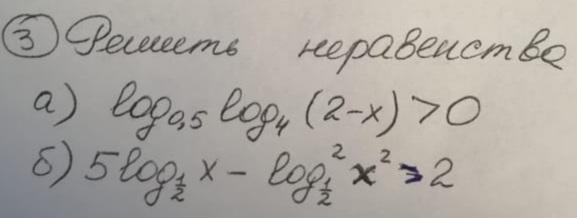 ③ Решить неравенства
а) log₀,₅ log₄ (2-x) > 0
б) 5log_{1/2} x - log²_{1/2} x² > 2